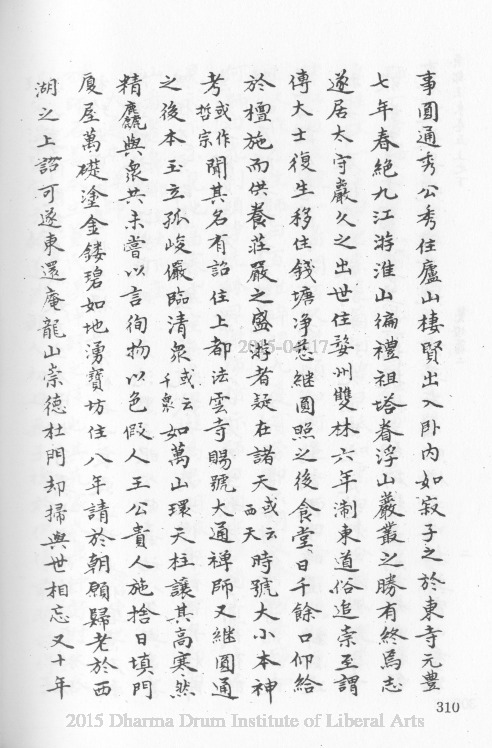 事圓通秀公秀住廬山棲賢出入卧内如寂子之於東寺元豊
七年春絶九江游淮山徧禮祖塔眷浮山巖叢之勝有終焉志
遂居太守巖久之出世住婺州雙林六年淛東道俗追崇至謂
傅大士復生移住錢塘淨慈継圓照之後食堂日千餘口仰給
於檀施而供養荘嚴之盛游者疑在諸天或云西天時號大小本神
考或作哲宗聞其名有詔住上都法雲寺賜號大通禅師又継圓通
之後本玉立孤峻儼臨清衆或云千衆如萬山環天柱讓其高寒然
精麄與衆共未嘗以言徇物以色假人王公貴人施捨日填門
厦屋萬礎塗金鏤碧如地湧寶坊住八年請於朝願歸老於西
湖之上詔可遂東還庵龍山崇德杜門却掃與世相忘又十年
310
2015-04-17
2015 Dharma Drum Institute of Liberal Arts